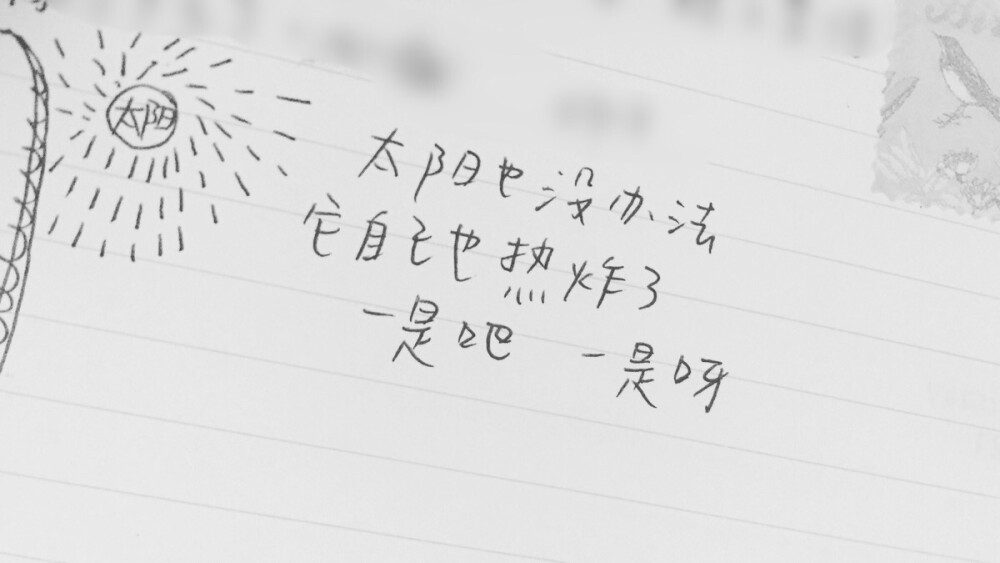 太阳
太阳也没办法
它自己也热炸了
-是吧 -是呀